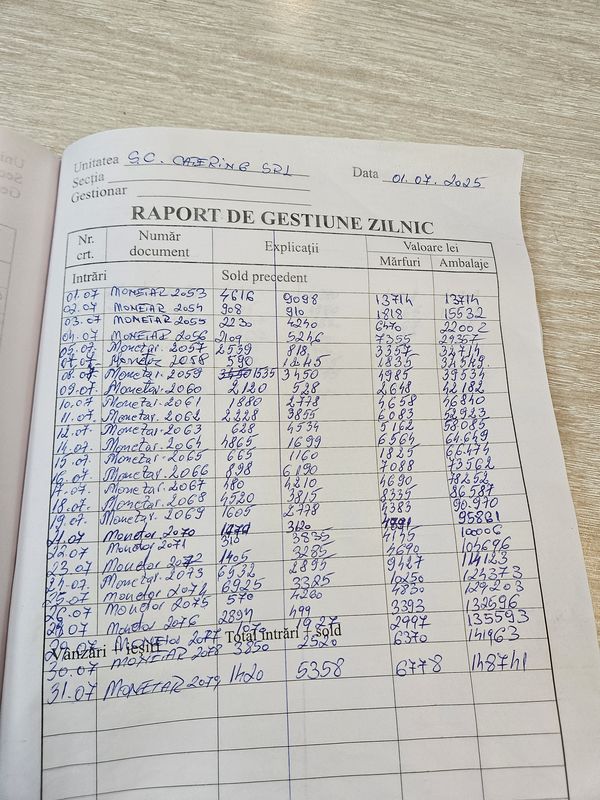 Unitatea S.C. CATERING SRL
Secția
Data 01.07.2025
Gestionar
RAPORT DE GESTIUNE ZILNIC
Nr. crt. Număr document Explicații Valoare lei
Mărfuri Ambalaje
Intrări Sold precedent
01.07 MONETAR 2053 4616 9098 13714 13714
02.07 MONETAR 2054 908 910 1818 15532
03.07 MONETAR 2055 2230 4240 6470 22002
04.07 MONETAR 2056 2109 5246 7355 29357
05.07 Monetar. 2057 2539 818 3357 32714
07.07 Monetar 2058 590 1245 1835 34549
08.07 Monetar. 2059 1535 3450 4985 39534
09.07 Monetar. 2060 2120 528 2648 42182
10.07 Monetar. 2061 1880 2778 4658 46840
11.07 Monetar. 2062 2228 3855 6083 52923
12.07 Monetar. 2063 628 4534 5162 58085
14.07 Monetar. 2064 4865 1699 6564 64649
15.07 Monetar. 2065 665 1160 1825 66474
16.07 Monetar. 2066 898 6190 7088 73562
17.07 Monetar. 2067 480 4210 4690 78252
18.07 Monetar. 2068 4520 3815 8335 86587
19.07 Monetar. 2069 1605 2778 4383 90.970
21.07 Monetar 2070 3420 4891 95861
22.07 Monetar 2071 310 3835 4145 100006
23.07 Monetar 2072 1405 3285 4690 104696
24.07 Monetar. 2073 6532 2895 9427 114123
25.07 Monetar 2074 6925 3325 10250 124373
26.07 Monetar 2075 570 4260 4830 129203
28.07 Monetar 2076 2894 499 3393 132596
29.07 Monetar 2077 1070 1927 2997 135593
Vânzări + ieșiri Total intrări + sold
30.07 MONETAR 2078 3850 2520 6370 141963
31.07 MONETAR 2079 1420 5358 6778 148741